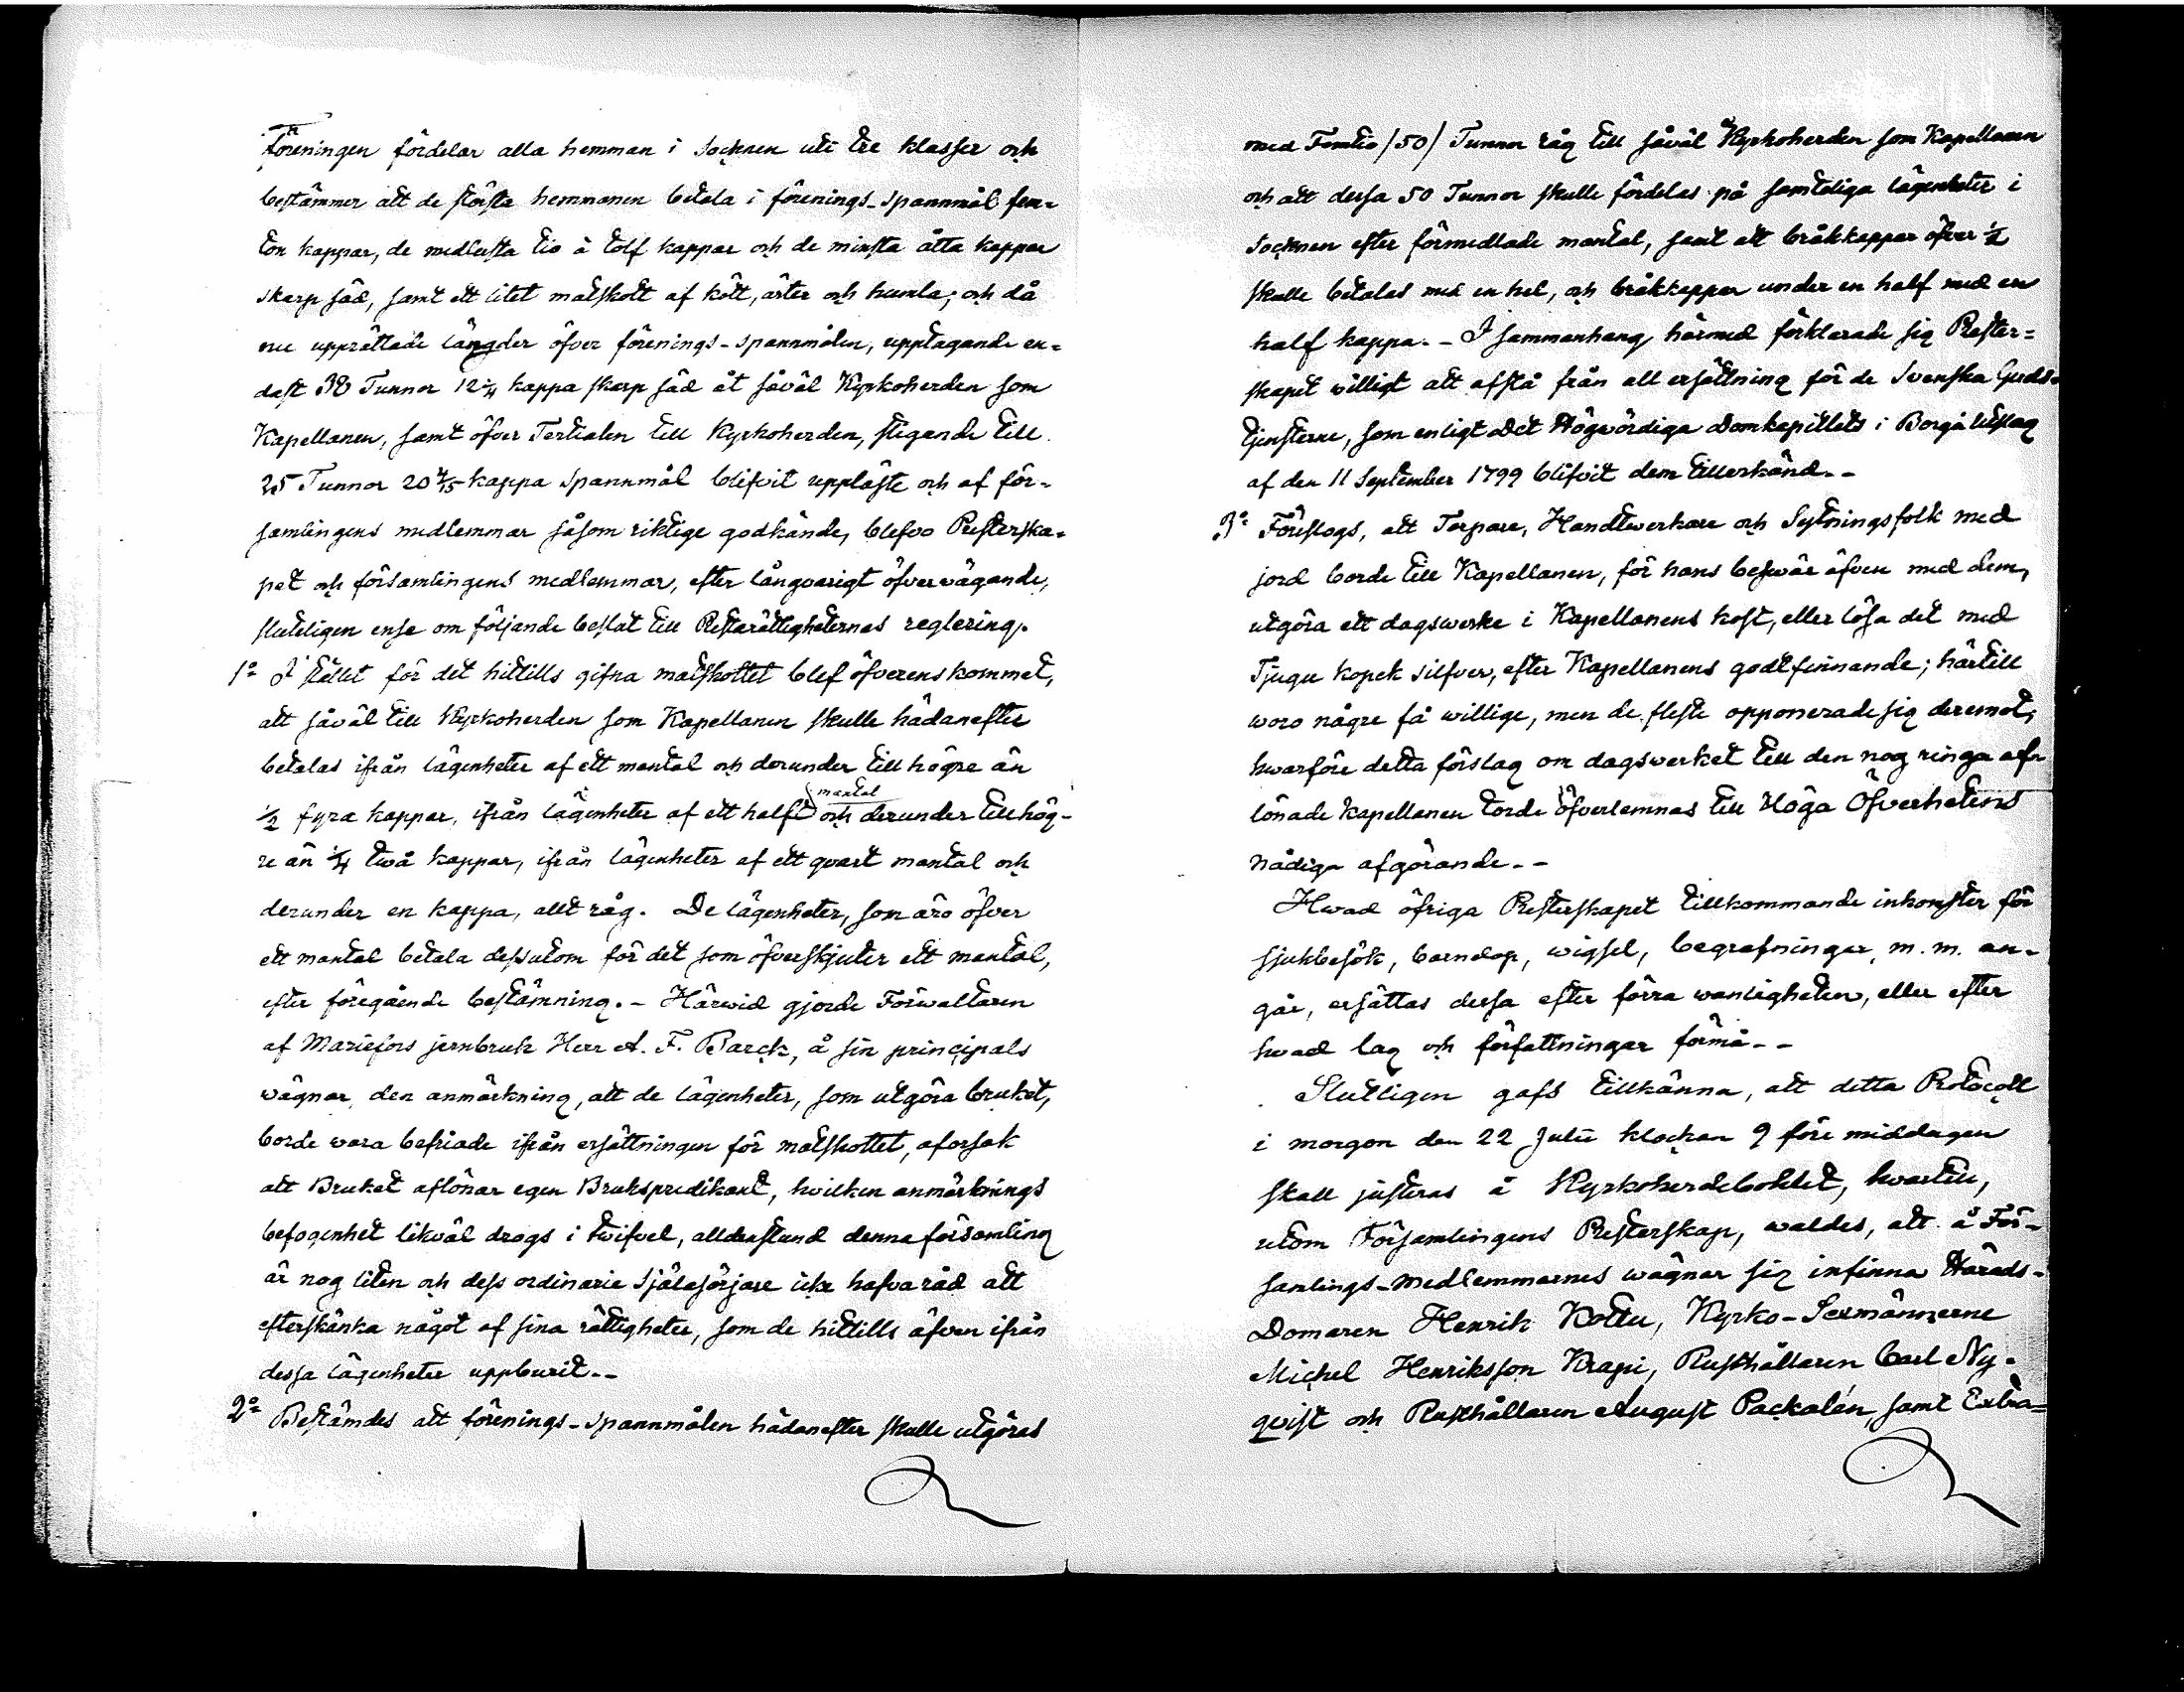 Föreningen fördelar alla hemman i Socknen uti tre klasser och
bestämmer att de största hemmanen betala i förenings-Spannmål fem-
ton kappar, de medlersta tio à tolf kappar och de minsta åtta kappar
skarp säd, samt ett litet matskott af kött, ärter och humla; och då
nu upprättade längder öfver förenings-spannmålen, upptagande en-
dast 38 Tunnor 12 1/4 kappa skarp säd åt såväl Kyrkoherden som
Kapellanen, samt öfver Tertialen till Kyrkoherden, stigande till
25 Tunnor 20 4/5 kappa Spannmål blifvit uppläste och af för-
samlingens medlemmar såsom riktige godkände, blefvo Presterska-
pet och församlingens medlemmar, efter långvarigt öfvervägande,
sluteligen ense om följande beslut till Prestarättigheternas reglering.
1o I stället för det hittills gifna matskottet blef öfverenskommet,
att såväl till Kyrkoherden som Kapellanen skulle hädanefter
betalas ifrån lägenheter af ett mantal och derunder till högre än
1/2 fyra kappar, ifrån lägenheter af ett halft mantal och derunder till hög-
re än 1/4 twå kappar, ifrån lägenheter af ett qvart mantal och
derunder en kappa, allt råg. De lägenheter, som äro öfver
ett mantal betala dessutom för det som öfverskjuter ett mantal,
efter föregående bestämning. - Härwid gjorde Förwaltaren
af Mariefors jernbruk Herr A. F. Barck, å sin principals
wägnar, den anmärkning, att de lägenheter, som utgöra bruket,
borde wara befriade ifrån ersättningen för matskottet, aforsak
att Bruket aflönar egen Brukspredikant, hvilken anmärknings
befogenhet likväl drogs i twifvel, alldenstund denna församling
är nog liten och dess ordinarie Själasörjare icke hafva råd att
efterskänka något af sina rättigheter, som de hittills äfven ifrån
dessa lägenheter uppburit. -
2o Bestämdes att förenings-spannmålen hädanefter skulle utgöras
med Femtio /50/ Tunnor råg till såväl Kyrkoherden som Kapellanen
och att dessa 50 Tunnor skulle fördelas på samteliga lägenheter i
Socknen efter förmedlade mantal, samt att bråkkappar öfver 1/2
skulle betalas med en hel, och bråkkappar under en half med en
half kappa. - I sammanhang härmed förklarade sig Prester=
skapet willigt att afstå från all ersättning för de Svenska Guds-
tjensterne, som enligt Det Högwördiga Domkapitlets i Borgå utslag
af den 11 September 1799 blifvit dem tillerkänd. -
3o Föreslogs, att Torpare, Handtwerkare och Sytningsfolk med
jord borde till Kapellanen, för hans beswär äfven med dem,
utgöra ett dagswerke i Kapellanens kost, eller lösa det med
Tjugu kopek silfver, efter Kapellanens godtfinnande; härtill
woro några få willige, men de fleste opponerade sig deremot;
hwarföre detta förslag om dagswerket till den nog ringa af-
lönade Kapellanen torde öfverlemnas till Höga Öfverhetens
nådiga afgörande. -
Hwad öfriga Presterskapet tillkommande inkomster för
sjukbesök, barndop, wigsel, begrafningar, m. m. an-
går, ersättas dessa efter förra wanligheten, eller efter
hwad lag och författningar förmå. -
Slutligen gafs tillkänna, att detta Protocoll
i morgon den 22 Julii klockan 9 före middagen
skall justeras å Kyrkoherdebohlet, hwartill,
utom Församlingens Presterskap, waldes, att å För-
samlings-medlemmarnes wägnar sig infinna Härads-
Domaren Henrik Kottu, Kyrko-Sexmännerne
Michel Henriksson Krapi, Rusthållaren Carl Ny-
qvist och Rusthållaren August Packalén, samt Extra=